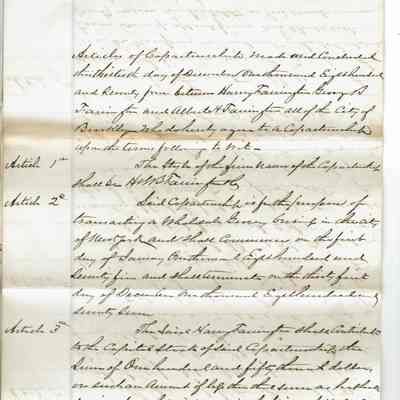 Articles of Copartnership Made and Concluded
this thirtieth day of December One thousand Eight hundred
and Seventy four between Harvey Farrington George S
Farrington and Albert H Farrington all of the City of
Brooklyn Who do hereby agree to a Copartnership
upon the terms following to Wit—
Article 1st The Style of the firm Name of the Copartnership
shall be
Article 2d Said Copartnership is for the purpose of
transacting a Wholesale Grocery business in the City
of New York and shall Commence on the first
day of January One thousand Eight hundred and
Seventy five and shall terminate on the thirty first
day of December One thousand Eight hundred and
seventy seven
Article 3rd The Said Harvey Farrington shall Contribute
to the Capital Stock of said Copartnership the
Sum of One hundred and fifty thousand dollars
or such an Amount